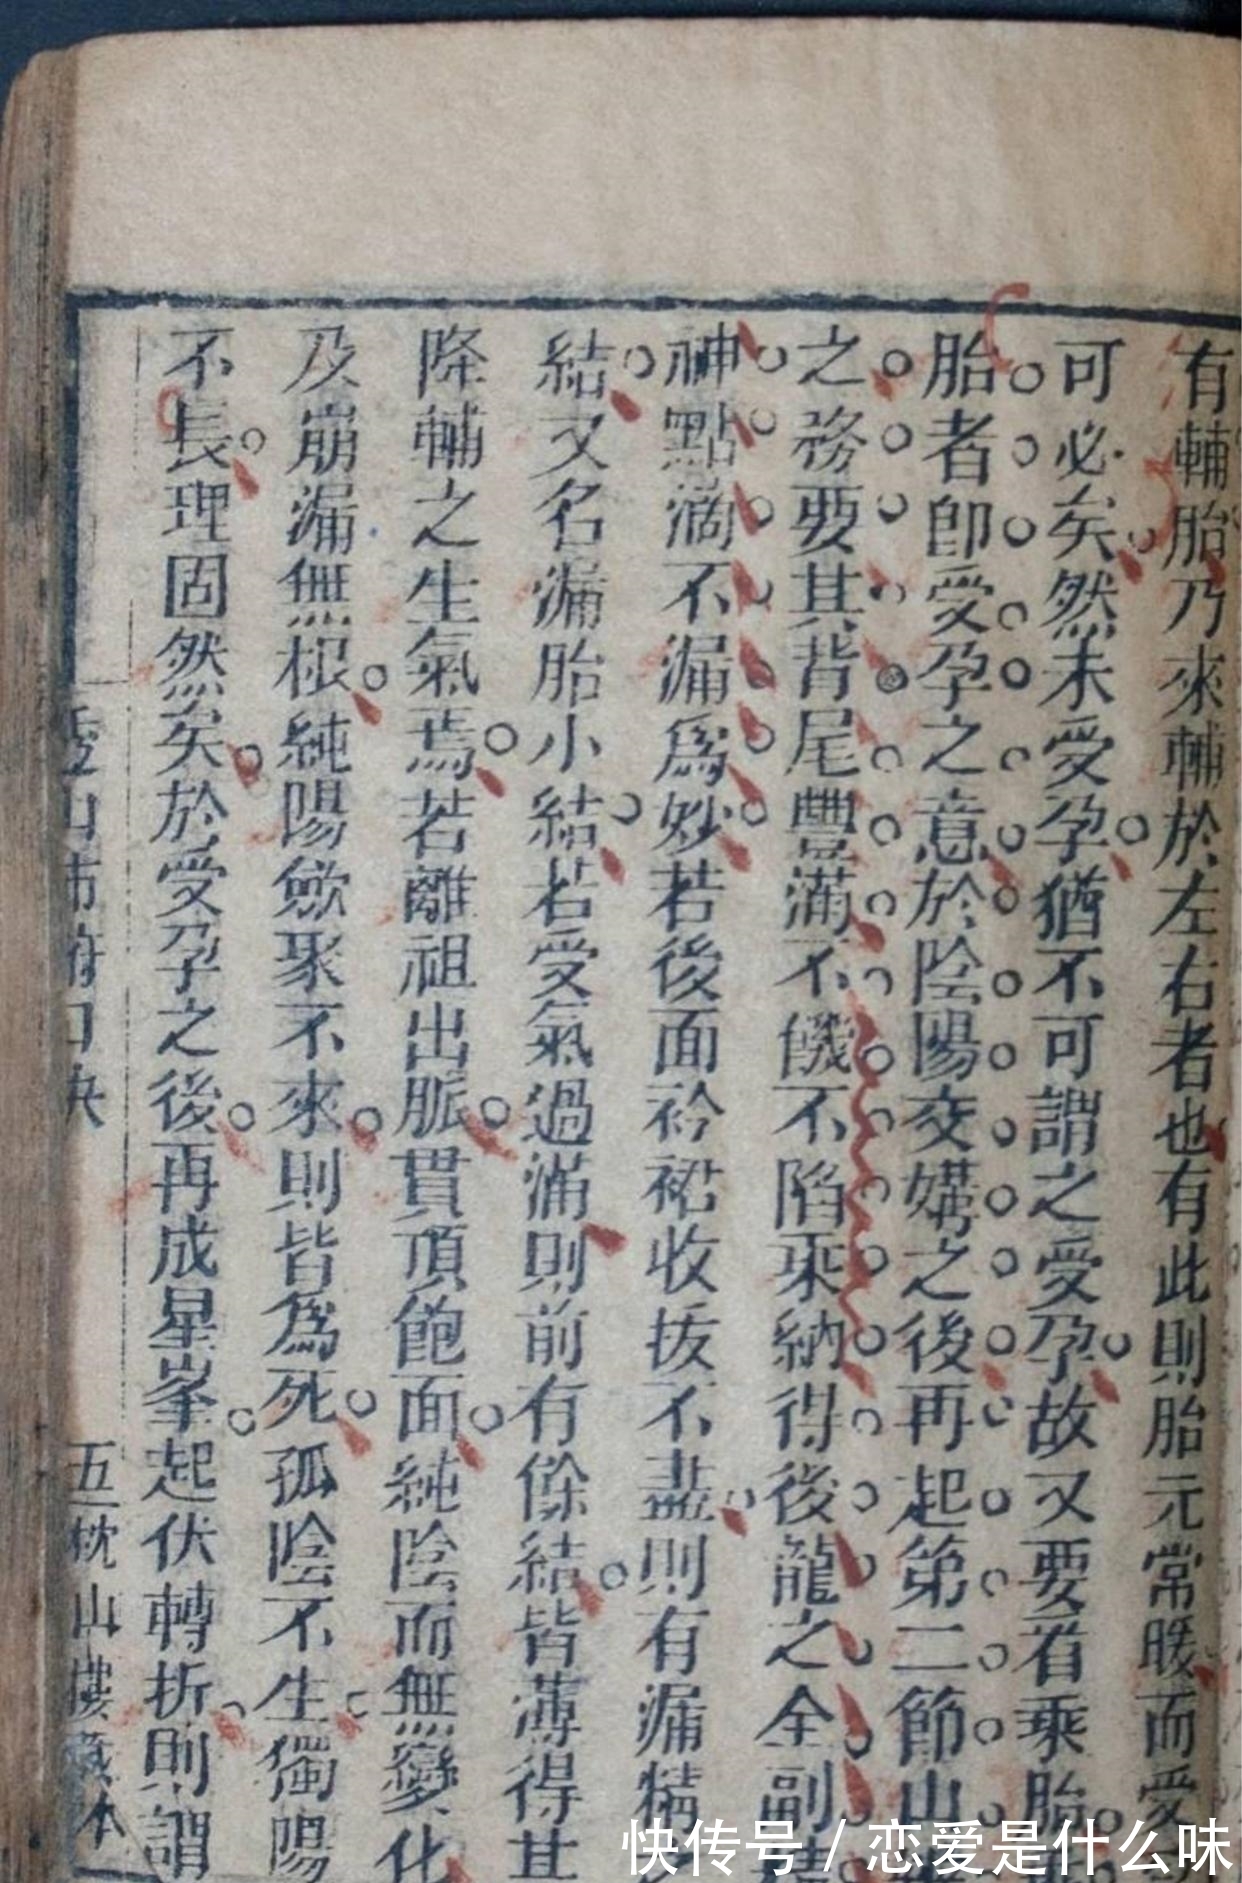 有輔胎乃來輔於左右者也有此則胎元常暖而受
可必矣然未受孕猶不可謂之受孕故又要看乘胎
胎者卽受孕之意於陰陽交媾之後再起第二節山
之務要其背尾豐滿不饑不陷乘納得後龍之全副精
神點滴不漏爲妙若後面衿裙收拔不盡則有漏精
結又名漏胎小結若受氣過滿則前有餘結皆薄得其
降輔之生氣焉若離祖出脈貫頂飽面純陰而無變化
及崩漏無根純陽斂聚不來則皆爲死孤陰不生獨陽
不長理固然矣於受孕之後再成星峯起伏轉折則謂
山
口
五 枕山樓藏本
快传号 / 恋爱是什么味